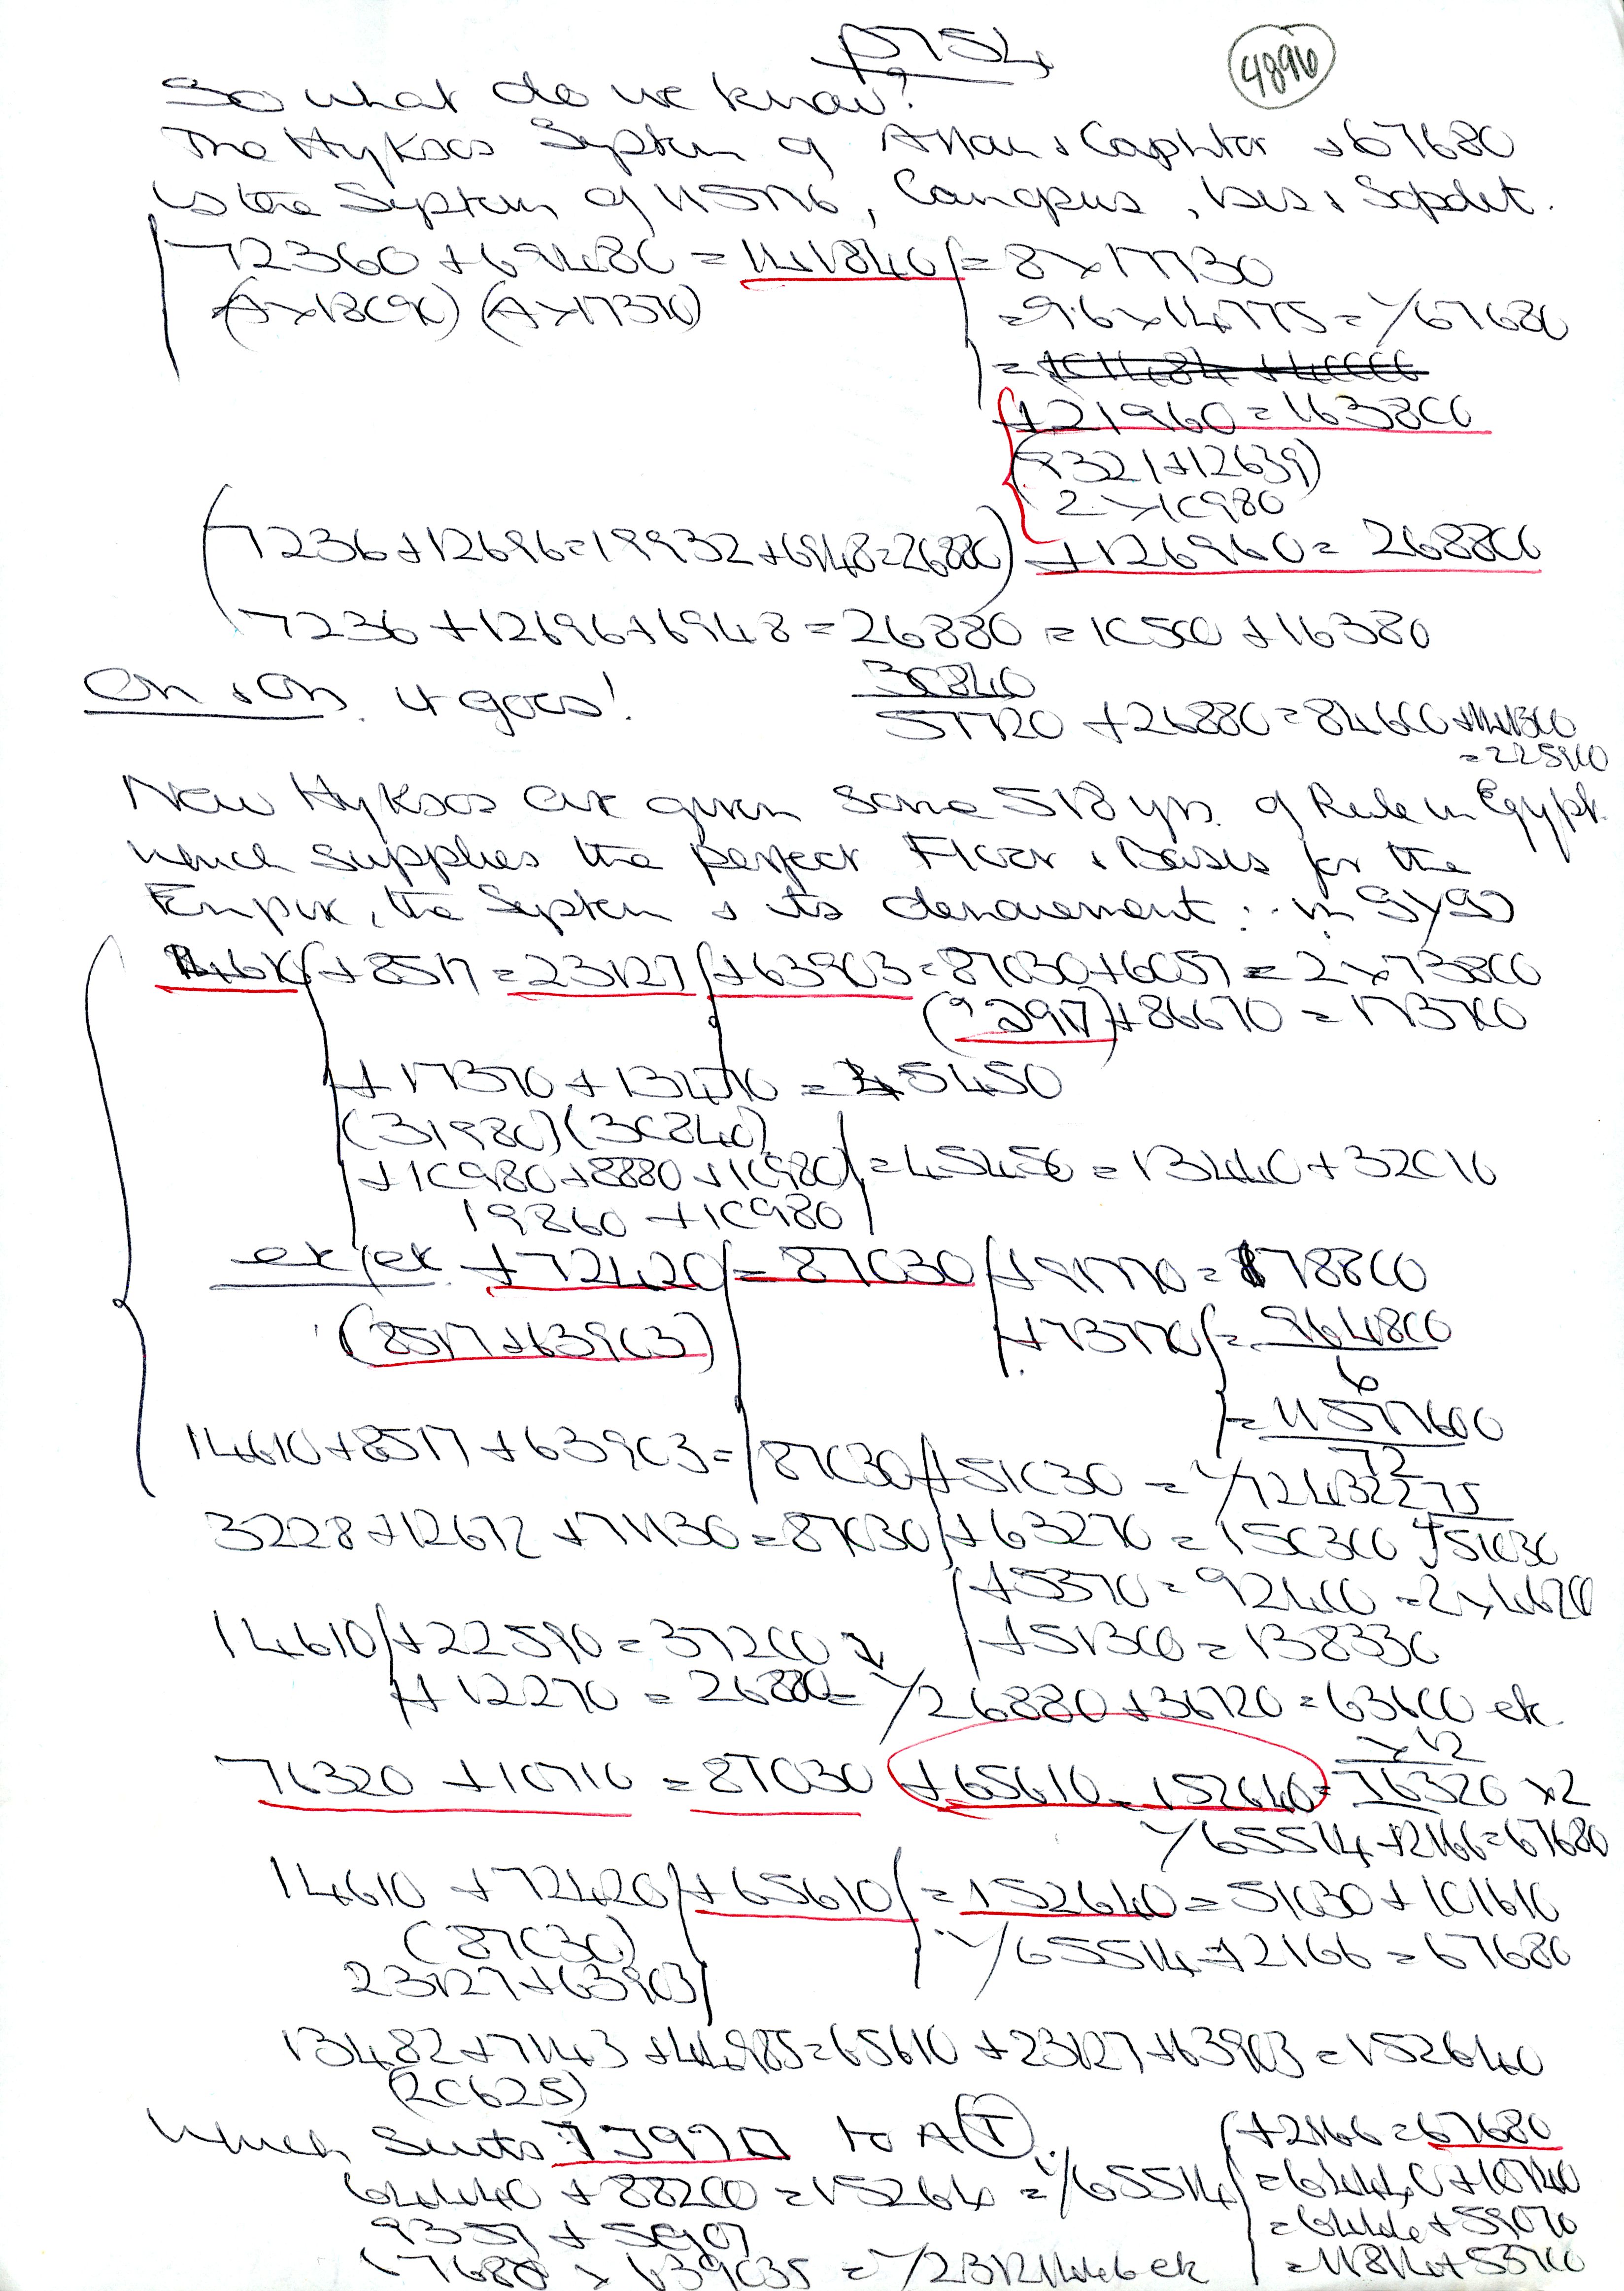 p754
4896
So what do we know?
The Hyksos System of Allan & Caphtor & 67680
is the System of 11576, Canopus, Isis & Sopdet.
72360 + 69480 = 141840 = 8 x 17730
(4 x 18090) (4 x 17370) = 9.6 x 14775 = Y67680
+ 21960 = 163800
(9321 + 12639)
2 x 10980
(7236 + 12696 = 19932 + 6948 = 26880) + 126960 = 268800
7236 + 12696 + 6948 = 26880 = 10500 + 16380
On & On it goes!
30840
57720 + 26880 = 84600 + 141300
= 225900
Now Hyksos are given some 518 yrs. of Rule in Egypt
which supplies the perfect Floor & Basis for the
Empire, the System & its denouement :. in
14610 + 8517 = 23127 + 63903 = 87030 + 6057 = 2 x 73800
+ 86670 = 173700
+ 17370 + 13470 = 45450
(31980) (30840)
+ 10980 + 8880 + 10980 = 45450 = 13440 + 32010
19860 + 10980
ek/ek + 72420 = 87030 + 91770 = 178800
(8517 + 63903) + 73770 = 964800
6
= 11577600
72
14610 + 8517 + 63903 = 87030 + 51030 = Y72432275
3228 + 12672 + 71130 = 87030 + 63270 = 150300 + 51030
+ 5370 = 92400 = 2 x 46200
14610 + 22590 = 37200 + 51300 = 138330
+ 12270 = 26880 = Y26880 + 36720 = 63600 ek
x 12
76320 + 10710 = 87030 + 65610 = 152640 = 76320 x 2
Y65514 + 2166 = 67680
14610 + 72420 + 65610 = 152640 = 51030 + 101610
(87030) Y65514 + 2166 = 67680
23127 + 63903
13482 + 7143 + 44985 = 65610 + 23127 + 63903 = 152640
(20625)
which suits to A(T). + 2166 = 67680
64440 + 88200 = 15264 = Y65514 = 64440 + 10740
9357 + 5907 = 6444 + 59070
67680 x 639035 = = 11814 + 53700